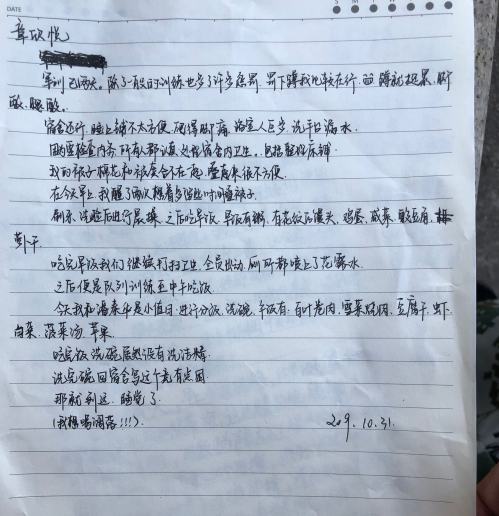 DATE
章欣悦
军训已两天。除了一般的训练也多了许多惩罚。罚下蹲我比较在行。蹲就很累，脚
酸、腿酸。
宿舍还行，睡上铺不太方便，硬得脚痛，浴室人巨多，洗手台漏水。
因为要检查内务，所有人都认真整理宿舍内卫生。包括整理床铺
我的被子棉花和被套合不在一起，叠起来很不方便。
在今天早上，我醒了两次想着多些时间叠被子。
刷牙、洗脸后进行晨操。之后吃早饭。早饭有粥，有花纹的馒头，鸡蛋，咸菜，
萝卜干。
吃完早饭我们继续打扫卫生，全员出动，厕所都喷上了花露水。
之后便是队列训练至中午吃饭。
今天我和潘奉华是小值日，进行分饭、洗碗。午饭有：百叶卷肉，雪菜烧肉，豆腐干，虾，
白菜，菠菜汤，苹果
吃完饭，洗碗居然没有洗洁精
洗完碗回宿舍写这个，竟有点困
那就到这，睡觉了
(我想喝泡茶!!!)
2019.10.31.